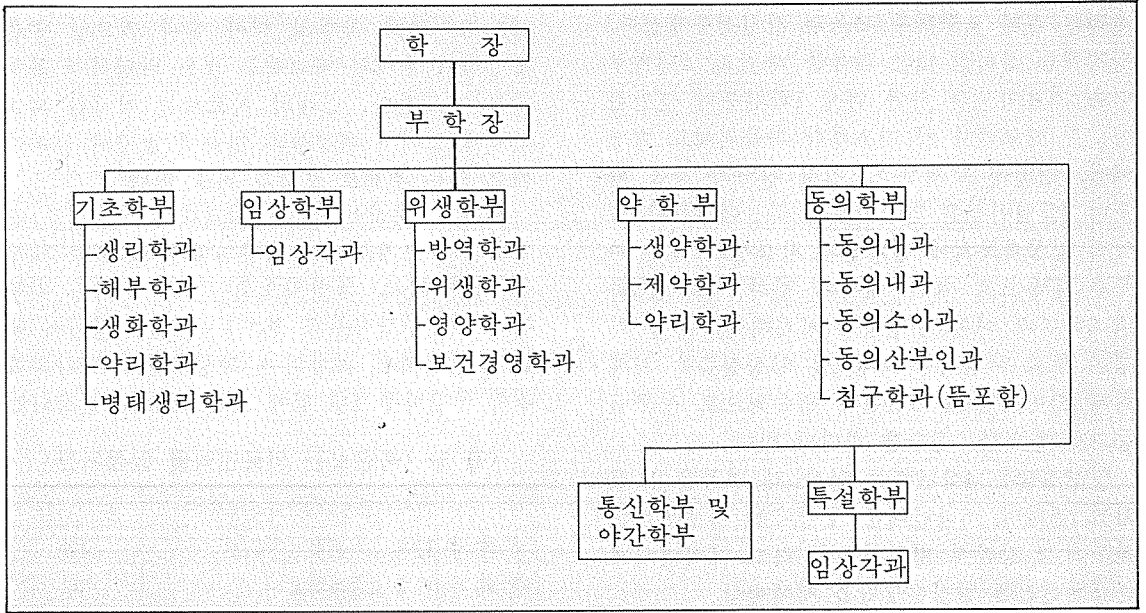 학 장
부 학 장
기초학부
생리학과
해부학과
생화학과
약리학과
병태생리학과
임상학부
임상각과
위생학부
방역학과
위생학과
영양학과
보건경영학과
약 학 부
생약학과
제약학과
약리학과
동의학부
동의내과
동의내과
동의소아과
동의산부인과
침구학과(뜸포함)
통신학부 및
야간학부
특설학부
임상각과